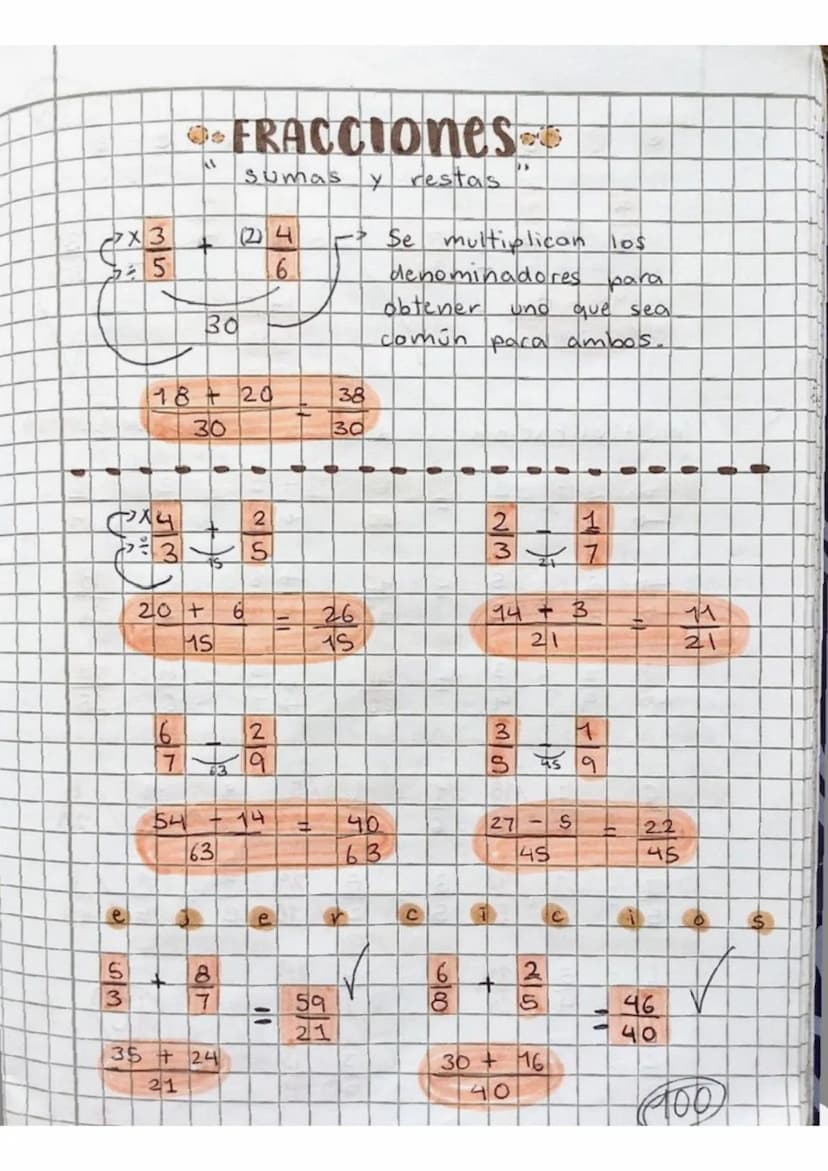 FRACCIONES
"sumas y restas"
x 3/5 + (2) 4/6 → Se multiplican los
÷ denominadores para
30 obtener uno que sea
común para ambos.
18 + 20/30 = 38/30
x 4/3 ÷ + 2/5 15
2/3 - 1/7 21
20 + 6/15 = 26/15
14 + 3/21 = 11/21
6/7 - 2/9 63
3/5 - 1/9 45
54 - 14/63 = 40/63
27 - 5/45 = 22/45
ejercicios
5/3 + 8/7 = 59/21 ✓
6/8 + 2/5 = 46/40 ✓
35 + 24/21
30 + 16/40
100